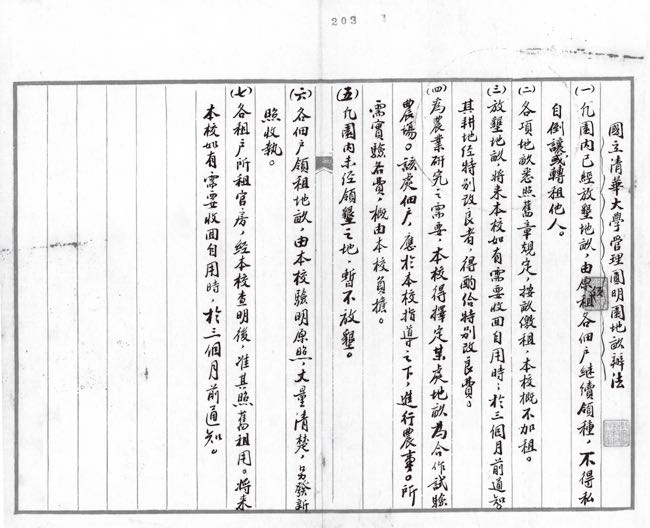 203
國立清華大學管理圓明園地畝辦法
(一)凡園內已經放墾地畝,由原租各佃戶繼續領種,不得私
自倒讓或轉租他人。
(二)各項地畝悉照舊章規定,按畝繳租,本校概不加租。
(三)放墾地畝,將来本校如有需要收回自用時,於三個月前通知
其耕地经特別改良者,得酌给特別改良費。
(四)為農業研究之需要,本校得擇定某處地畝為合作試驗
農場。該處佃戶,應於本校指導之下,進行農事。所
需實驗各費,概由本校負擔。
(五)凡園內未经領墾之地,暫不放墾。
(六)各佃戶領租地畝,由本校驗明原照,丈量清楚,另發新
照收執。
(七)各租戶所租官房,经本校查明後,准其照舊租用。將来
本校如有需要收回自用時,於三個月前通知。